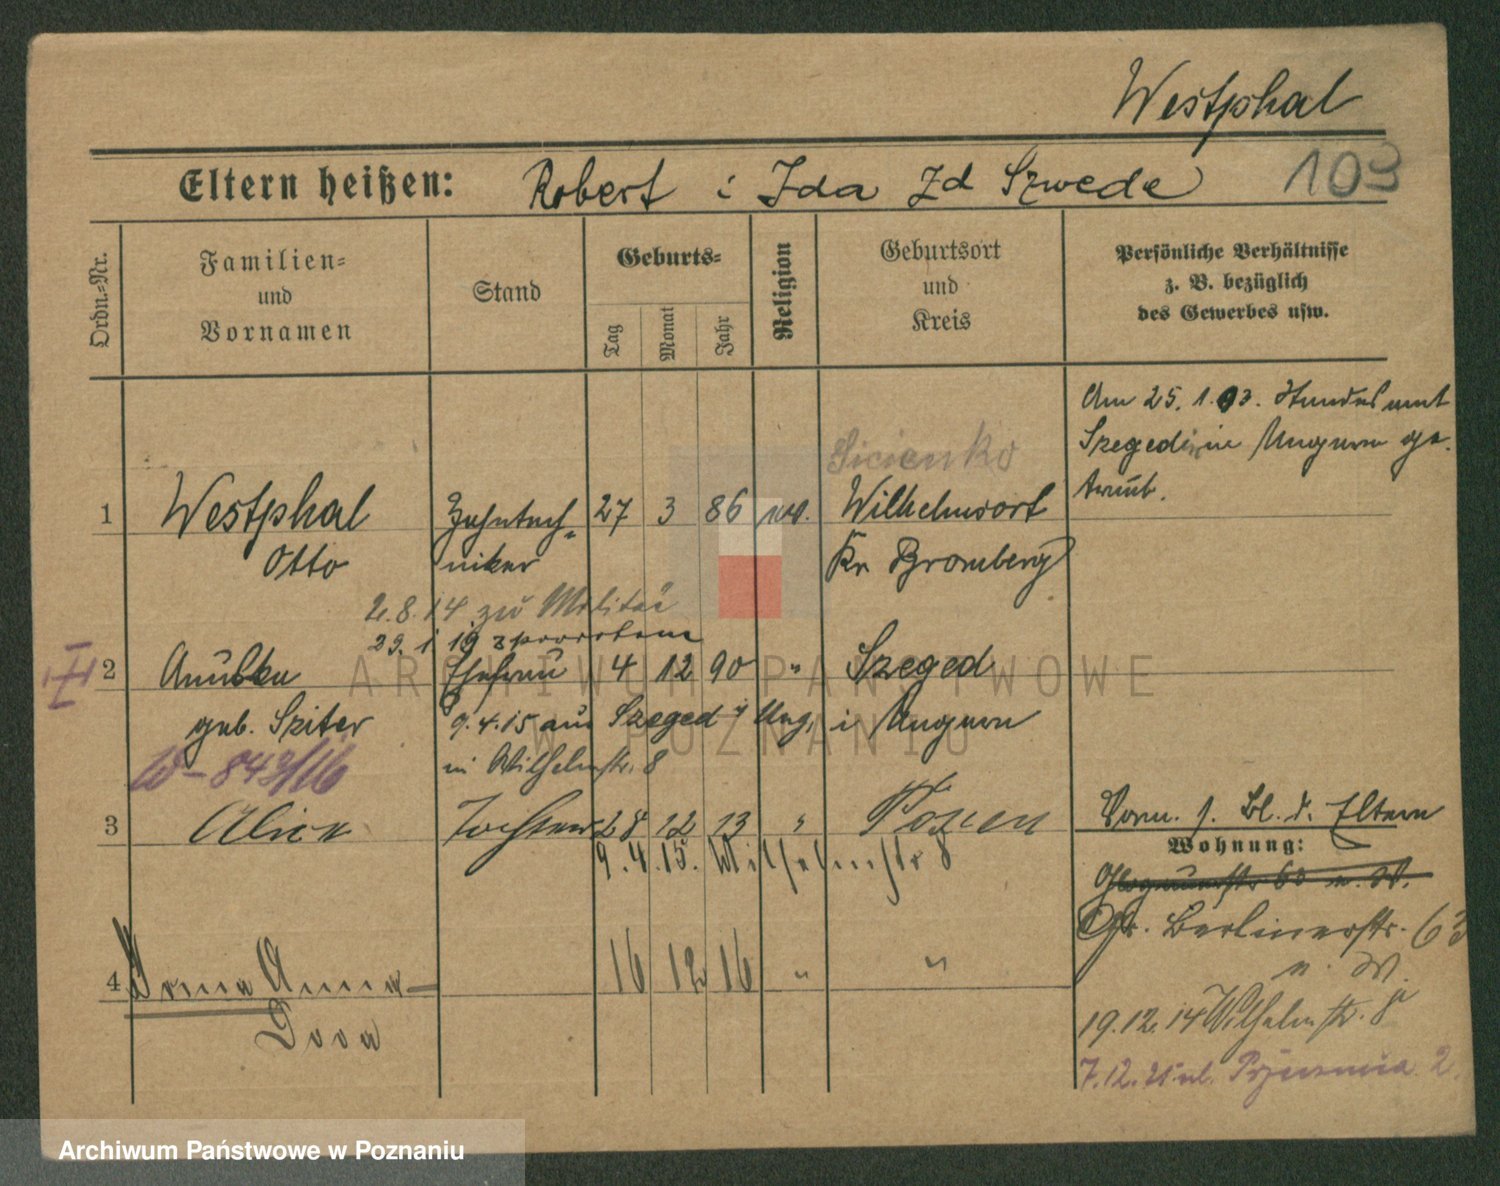 Westphal
Eltern heißen: Robert i Ida zd Szwede 103
Ordn.-Nr.
Familien-
und
Vornamen
Stand
Geburts-
Tag
Monat
Jahr
Religion
Geburtsort
und
Kreis
Persönliche Verhältnisse
z. B. bezüglich
des Gewerbes usw.
Am 25. 1. 13.
Szegedin in Ungarn ge-
traut.
Sicienko
1 Westphal Zahntech- 27 3 86 ev. Wilhelmsort
Otto niker Kr Bromberg
2.8.14 zu Militär
29. 1 19
2 Ehefrau 4 12 90 " Szeged
geb. Sziter 9.4.15 aus Szeged i/ Ung. i/ Ungarn
W-843/16 in Wilhelmstr. 8
3 Alice Tochter 28 12 13 " Posen
9.4.15. Wilhelmstr 8
Vorm. s. Bl. d. Eltern
Wohnung:
Gr. Berlinerstr. 63
n. W.
4 Irma Anna- 16 12 16 " "
Dora
19.12.14 Wilhelmstr. 8
7.12. ul. 2.
Archiwum Państwowe w Poznaniu
ARCHIWUM PAŃSTWOWE
W POZNANIU